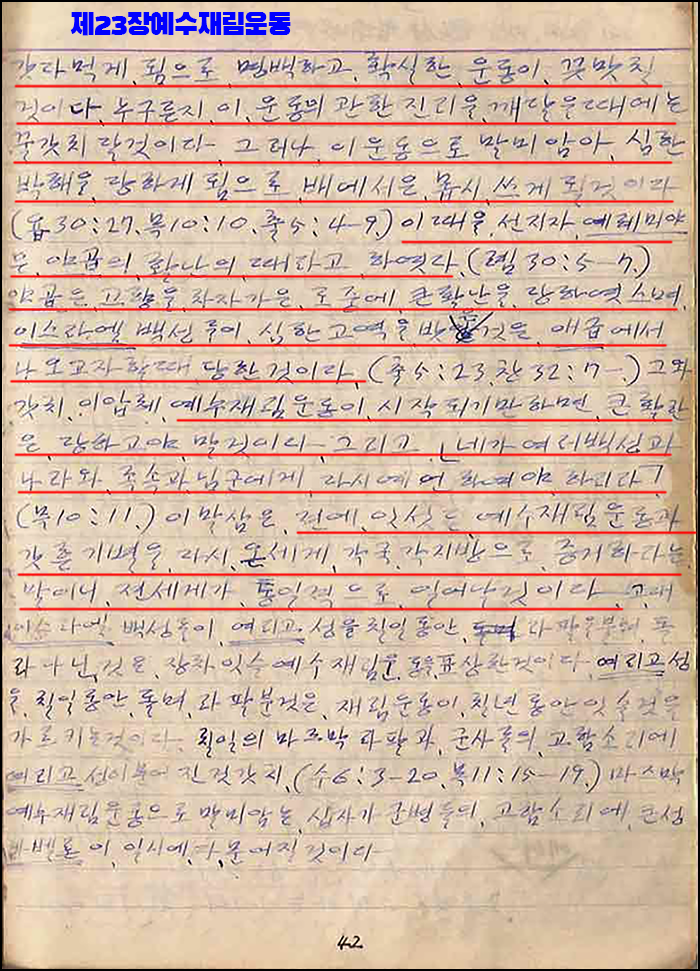 제23장예수재림운동
갖다먹게, 됨으로, 명백하고, 확실한, 운동이, 끗맛칠
것이다, 누구른지, 이, 운동의 관한 진리을, 깨달을때에는
꿀갗치 달것이다, 그러나, 이운동으로 말미암아, 심한
박해을, 당하게 됨으로, 배에서은, 몹시, 쓰게 될것이다
(욥30:27, 묵10:10, 출5:4-9,) 이때을, 선지자, 예레미야
는, 야곱의, 환난의, 때라고, 하엿다, (렘30:5-7,)
야곱은, 고향을, 차자가은, 도중에, 큰환난을, 당하엿스며,
이스라엘, 백성들이, 심한고역을, 밧은것은, 애굽에서
나오고자할때, 당한것이다, (출5:23, 창32:7-,) 그와
갗치, 이압헤, 예수재림운동이, 시작되기만하면, 큰환란
은, 당하고야, 말것이다, 그리고, 「네가 여러백성과
나라와, 족속과, 님군에게, 다시예언하여야, 하리라」
(묵10:11,) 이말삼은, 전에, 잇섯든 예수재림운동과
갗흔기별을, 다시, 온세게, 각국, 각지방으로, 증거하라는,
말이니, 전세게가, 통일적으로, 일어날것이다, 고대
이스라엘, 백성들이, 여리고, 성을칠일동안, 라팔을불며, 돌
라다닌, 것은, 장차잇슬예수재림운동을표상한것이다, 여리고성
을, 칠일동안, 돌며, 라팔분것은, 재림운동이, 칠년동안잇슬것을
가르키는것이다, 칠일의 마즈막 라팔과, 군사들의, 고함소리에
여리고성이 문어진것갗치, (수6:3-20, 묵11:15-19,) 마즈막
예수재림운동으로말미암는, 십자가군병들의, 고함소리에, 큰성
바벨론, 이, 일시에, 다, 문어질것이다
42